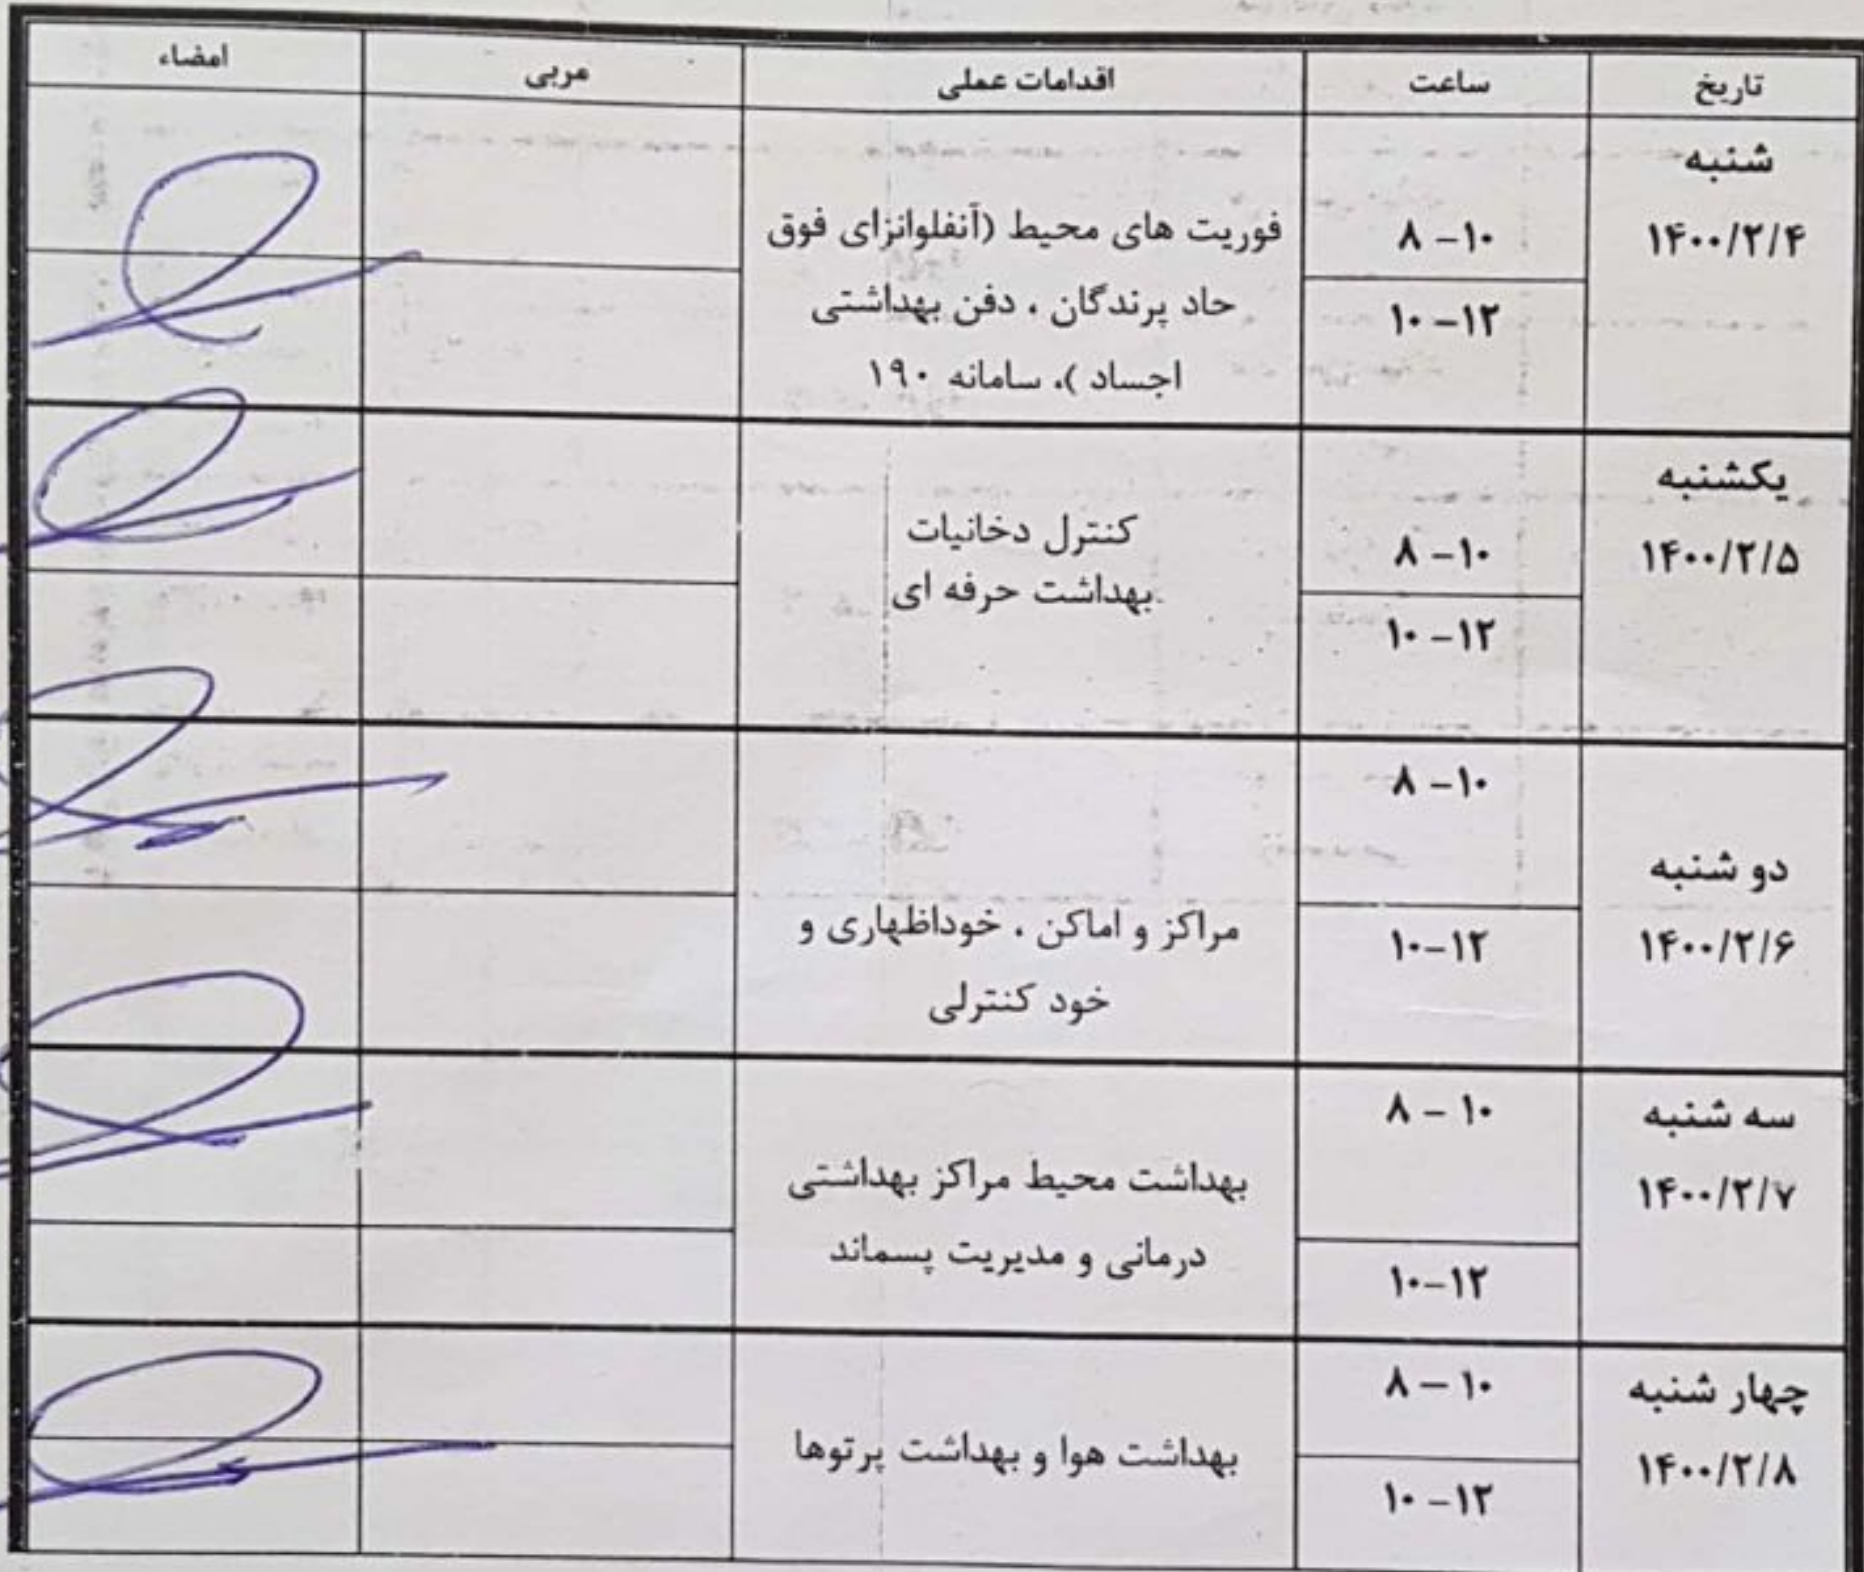 تاریخ ساعت اقدامات عملی مربی امضاء
شنبه
۱۴۰۰/۲/۴
۸ -۱۰
۱۰ -۱۲
فوریت های محیط (آنفلوانزای فوق
حاد پرندگان ، دفن بهداشتی
اجساد )، سامانه ۱۹۰
یکشنبه
۱۴۰۰/۲/۵
۸ -۱۰
۱۰ -۱۲
کنترل دخانیات
بهداشت حرفه ای
دو شنبه
۱۴۰۰/۲/۶
۸ -۱۰
۱۰-۱۲
مراکز و اماکن ، خوداظهاری و
خود کنترلی
سه شنبه
۱۴۰۰/۲/۷
۸ - ۱۰
۱۰-۱۲
بهداشت محیط مراکز بهداشتی
درمانی و مدیریت پسماند
چهار شنبه
۱۴۰۰/۲/۸
۸ – ۱۰
۱۰ -۱۲
بهداشت هوا و بهداشت پرتوها